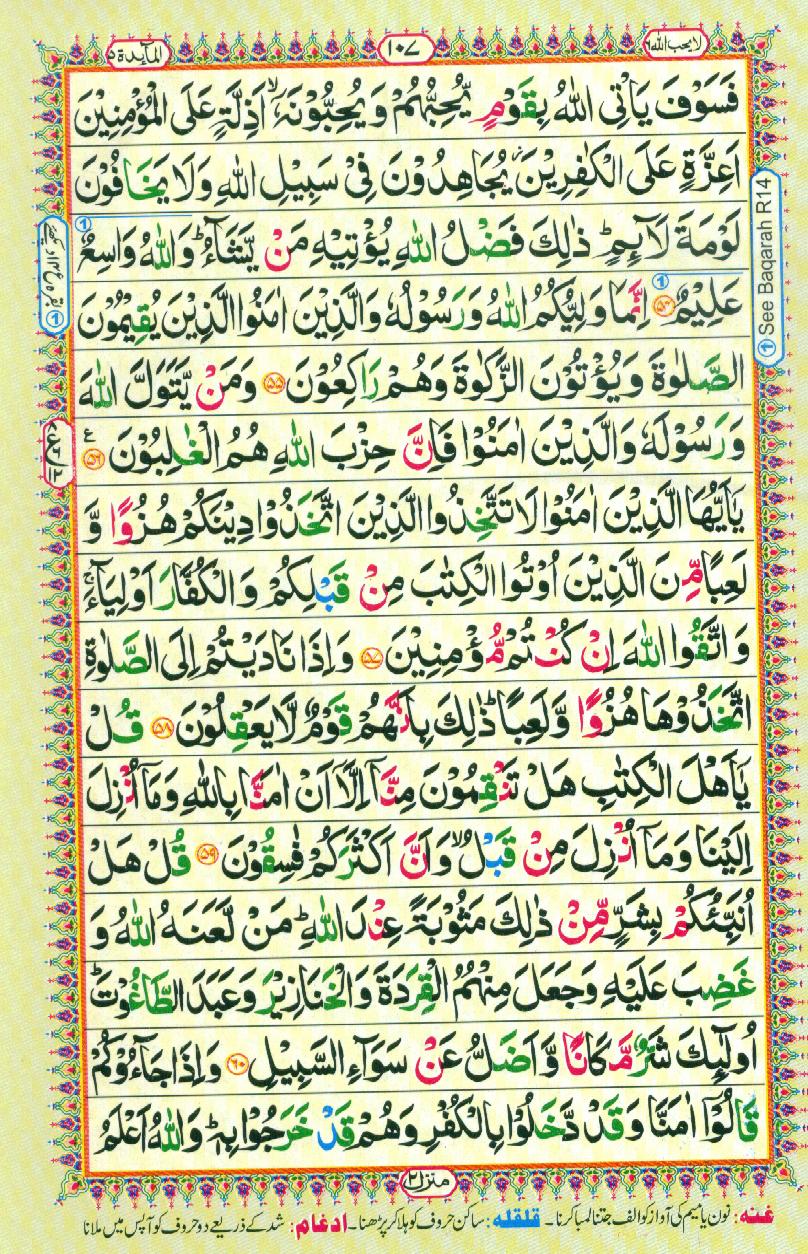 لا یحب اللہ ۶
۱۰۷
المآىِٕدة ۵
فَسَوْفَ يَاْتِی اللّٰهُ بِقَوْمٍ يُّحِبُّهُمْ وَيُحِبُّوْنَهٗۤ ۙ اَذِلَّةٍ عَلَى الْمُؤْمِنِيْنَ
اَعِزَّةٍ عَلَى الْكٰفِرِيْنَ ؗ يُجَاهِدُوْنَ فِیْ سَبِيْلِ اللّٰهِ وَلَا يَخَافُوْنَ
لَوْمَةَ لَآىِٕمٍ ؕ ذٰلِكَ فَضْلُ اللّٰهِ يُؤْتِيْهِ مَنْ يَّشَآءُ ؕ وَاللّٰهُ وَاسِعٌ
عَلِيْمٌ ﴿۵۴﴾ اِنَّمَا وَلِيُّكُمُ اللّٰهُ وَرَسُوْلُهٗ وَالَّذِيْنَ اٰمَنُوا الَّذِيْنَ يُقِيْمُوْنَ
الصَّلٰوةَ وَيُؤْتُوْنَ الزَّكٰوةَ وَهُمْ رٰكِعُوْنَ ﴿۵۵﴾ وَمَنْ يَّتَوَلَّ اللّٰهَ
وَرَسُوْلَهٗ وَالَّذِيْنَ اٰمَنُوْا فَاِنَّ حِزْبَ اللّٰهِ هُمُ الْغٰلِبُوْنَ ﴿۵۶﴾ ع
يٰۤاَيُّهَا الَّذِيْنَ اٰمَنُوْا لَا تَتَّخِذُوا الَّذِيْنَ اتَّخَذُوْا دِيْنَكُمْ هُزُوًا وَّ
لَعِبًا مِّنَ الَّذِيْنَ اُوْتُوا الْكِتٰبَ مِنْ قَبْلِكُمْ وَالْكُفَّارَ اَوْلِيَآءَ ۚ
وَاتَّقُوا اللّٰهَ اِنْ كُنْتُمْ مُّؤْمِنِيْنَ ﴿۵۷﴾ وَاِذَا نَادَيْتُمْ اِلَى الصَّلٰوةِ
اتَّخَذُوْهَا هُزُوًا وَّلَعِبًا ؕ ذٰلِكَ بِاَنَّهُمْ قَوْمٌ لَّا يَعْقِلُوْنَ ﴿۵۸﴾ قُلْ
يٰۤاَهْلَ الْكِتٰبِ هَلْ تَنْقِمُوْنَ مِنَّاۤ اِلَّاۤ اَنْ اٰمَنَّا بِاللّٰهِ وَمَاۤ اُنْزِلَ
اِلَيْنَا وَمَاۤ اُنْزِلَ مِنْ قَبْلُ ۙ وَاَنَّ اَكْثَرَكُمْ فٰسِقُوْنَ ﴿۵۹﴾ قُلْ هَلْ
اُنَبِّئُكُمْ بِشَرٍّ مِّنْ ذٰلِكَ مَثُوْبَةً عِنْدَ اللّٰهِ ؕ مَنْ لَّعَنَهُ اللّٰهُ وَ
غَضِبَ عَلَيْهِ وَجَعَلَ مِنْهُمُ الْقِرَدَةَ وَالْخَنَازِيْرَ وَعَبَدَ الطَّاغُوْتَ ؕ
اُولٰٓىِٕكَ شَرٌّ مَّكَانًا وَّاَضَلُّ عَنْ سَوَآءِ السَّبِيْلِ ﴿۶۰﴾ وَاِذَا جَآءُوْكُمْ
قَالُوْۤا اٰمَنَّا وَقَدْ دَّخَلُوْا بِالْكُفْرِ وَهُمْ قَدْ خَرَجُوْا بِهٖ ؕ وَاللّٰهُ اَعْلَمُ
① See Baqarah R14
منزل ۲
غنہ: نون یا میم کی آواز کو الف جتنا لمبا کرنا۔ قلقلہ: ساکن حروف کو ہلا کر پڑھنا۔ ادغام: شد کے ذریعے دو حروف کو آپس میں ملانا